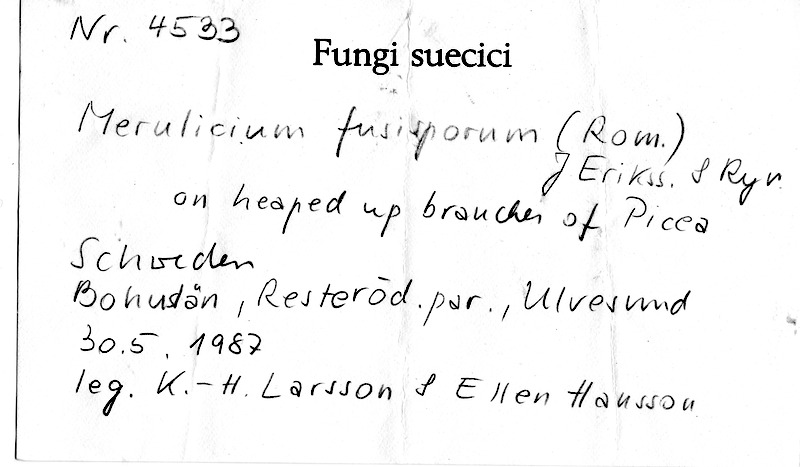 Nr. 4533
Fungi suecici
Merulicium fusisporum (Rom.)
J Erikss. & Ryv.
on heaped up branches of Picea
Schweden
Bohuslän, Resteröd. par., Ulvesund
30.5. 1987
leg. K.-H. Larsson & Ellen Hansson